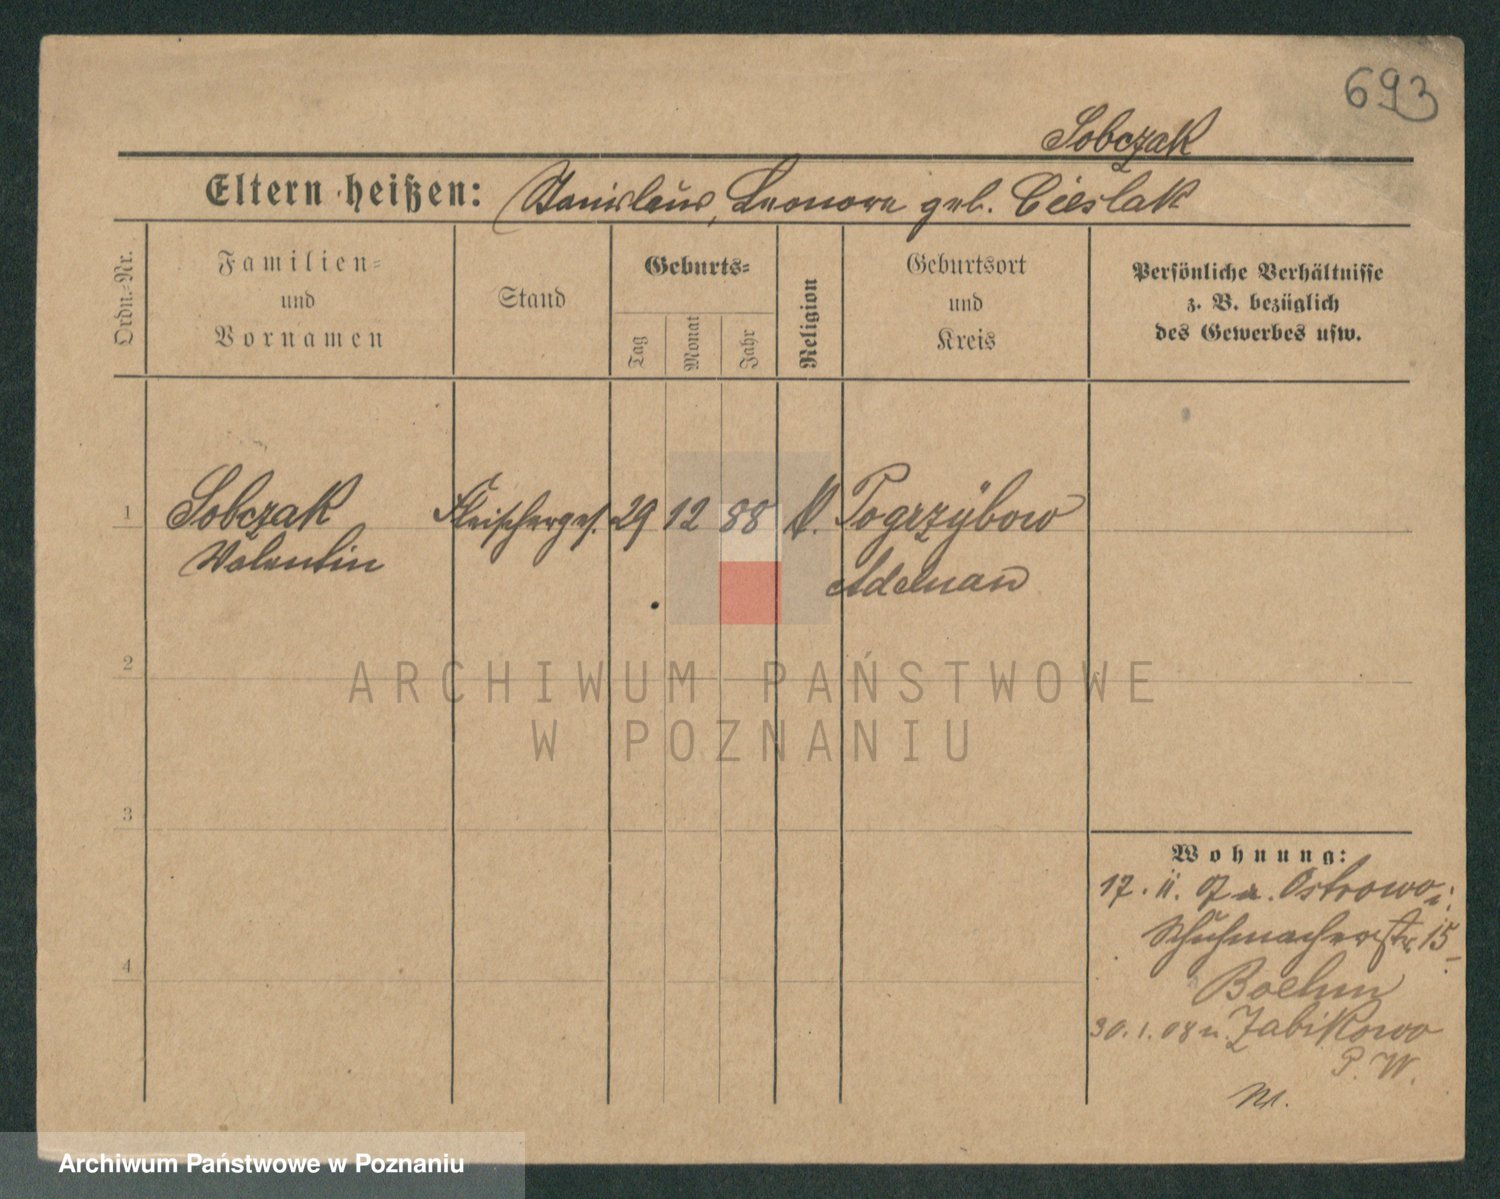 693
Sobczak
Eltern heißen: Stanislaus, Leonore geb. Cieslak
Ordn.-Nr.
Familien-
und
Vornamen
Stand
Geburts-
Tag
Monat
Jahr
Religion
Geburtsort
und
Kreis
Persönliche Verhältnisse
z. B. bezüglich
des Gewerbes usw.
1
Sobczak
Valentin
Fleischerges.
29
12
88
k.
Pogrzybow
Adelnau
2
3
4
Wohnung:
17. 11. 07 a. Ostrowo
Schuhmacherstr. 15
Boehm
30. 1. 08 n. Zabikowo
P. W.
ARCHIWUM PAŃSTWOWE
W POZNANIU
Archiwum Państwowe w Poznaniu